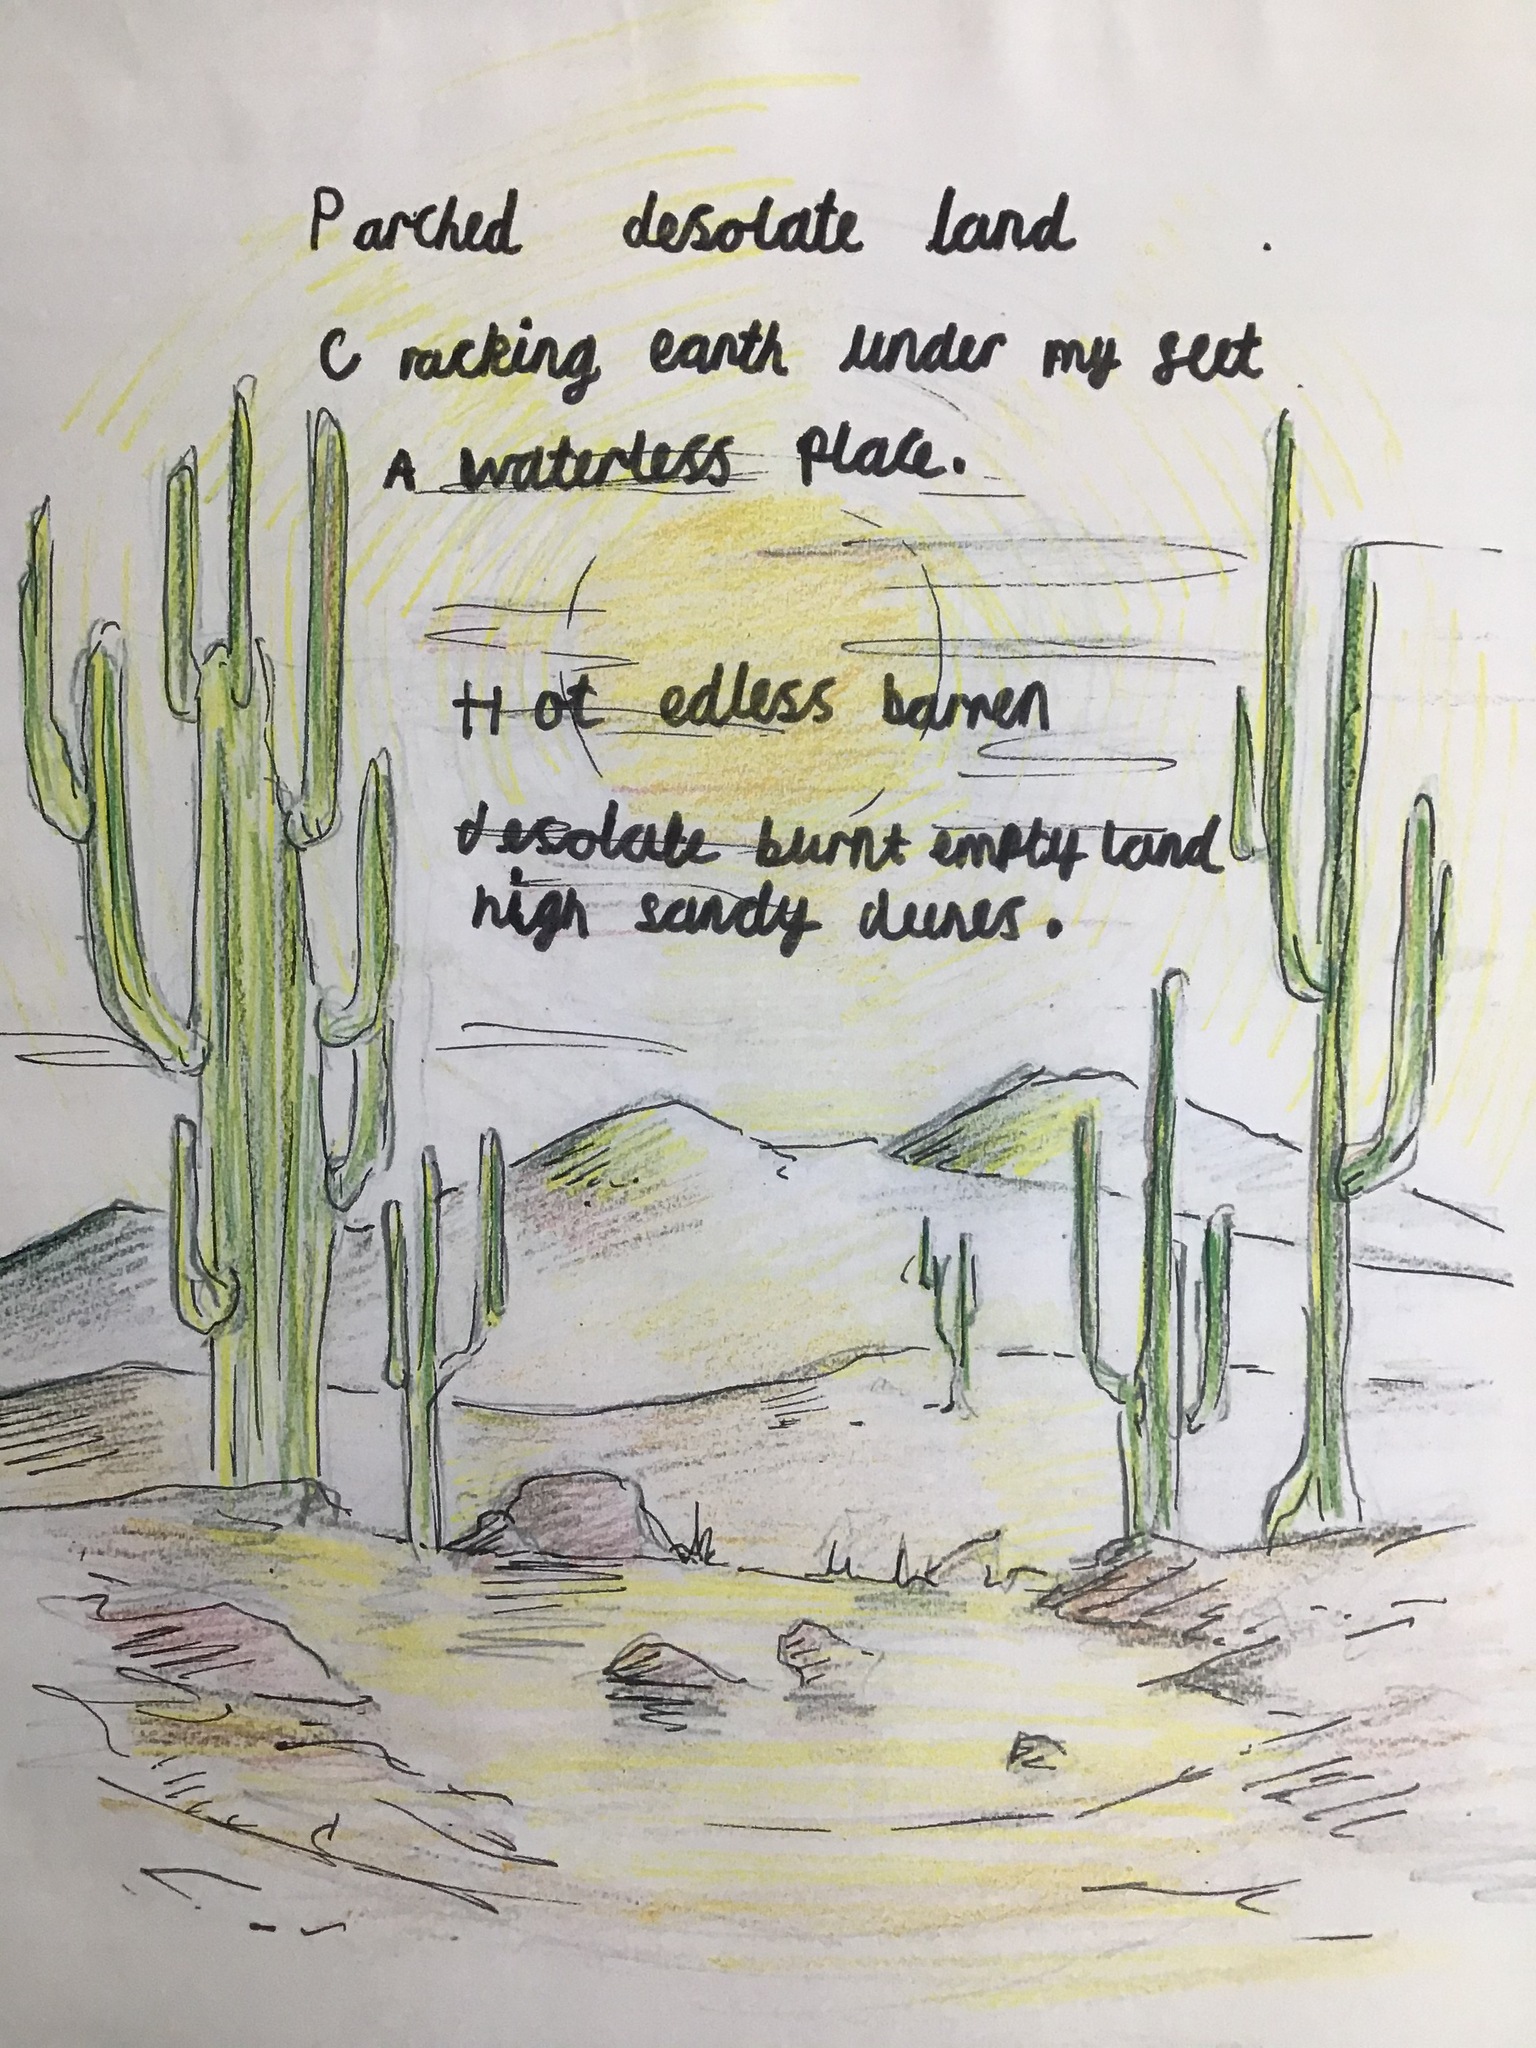 Parched desolate land
Cracking earth under my feet
A waterless place.
Hot edless barren
desolate burnt empty land
high sandy dunes.